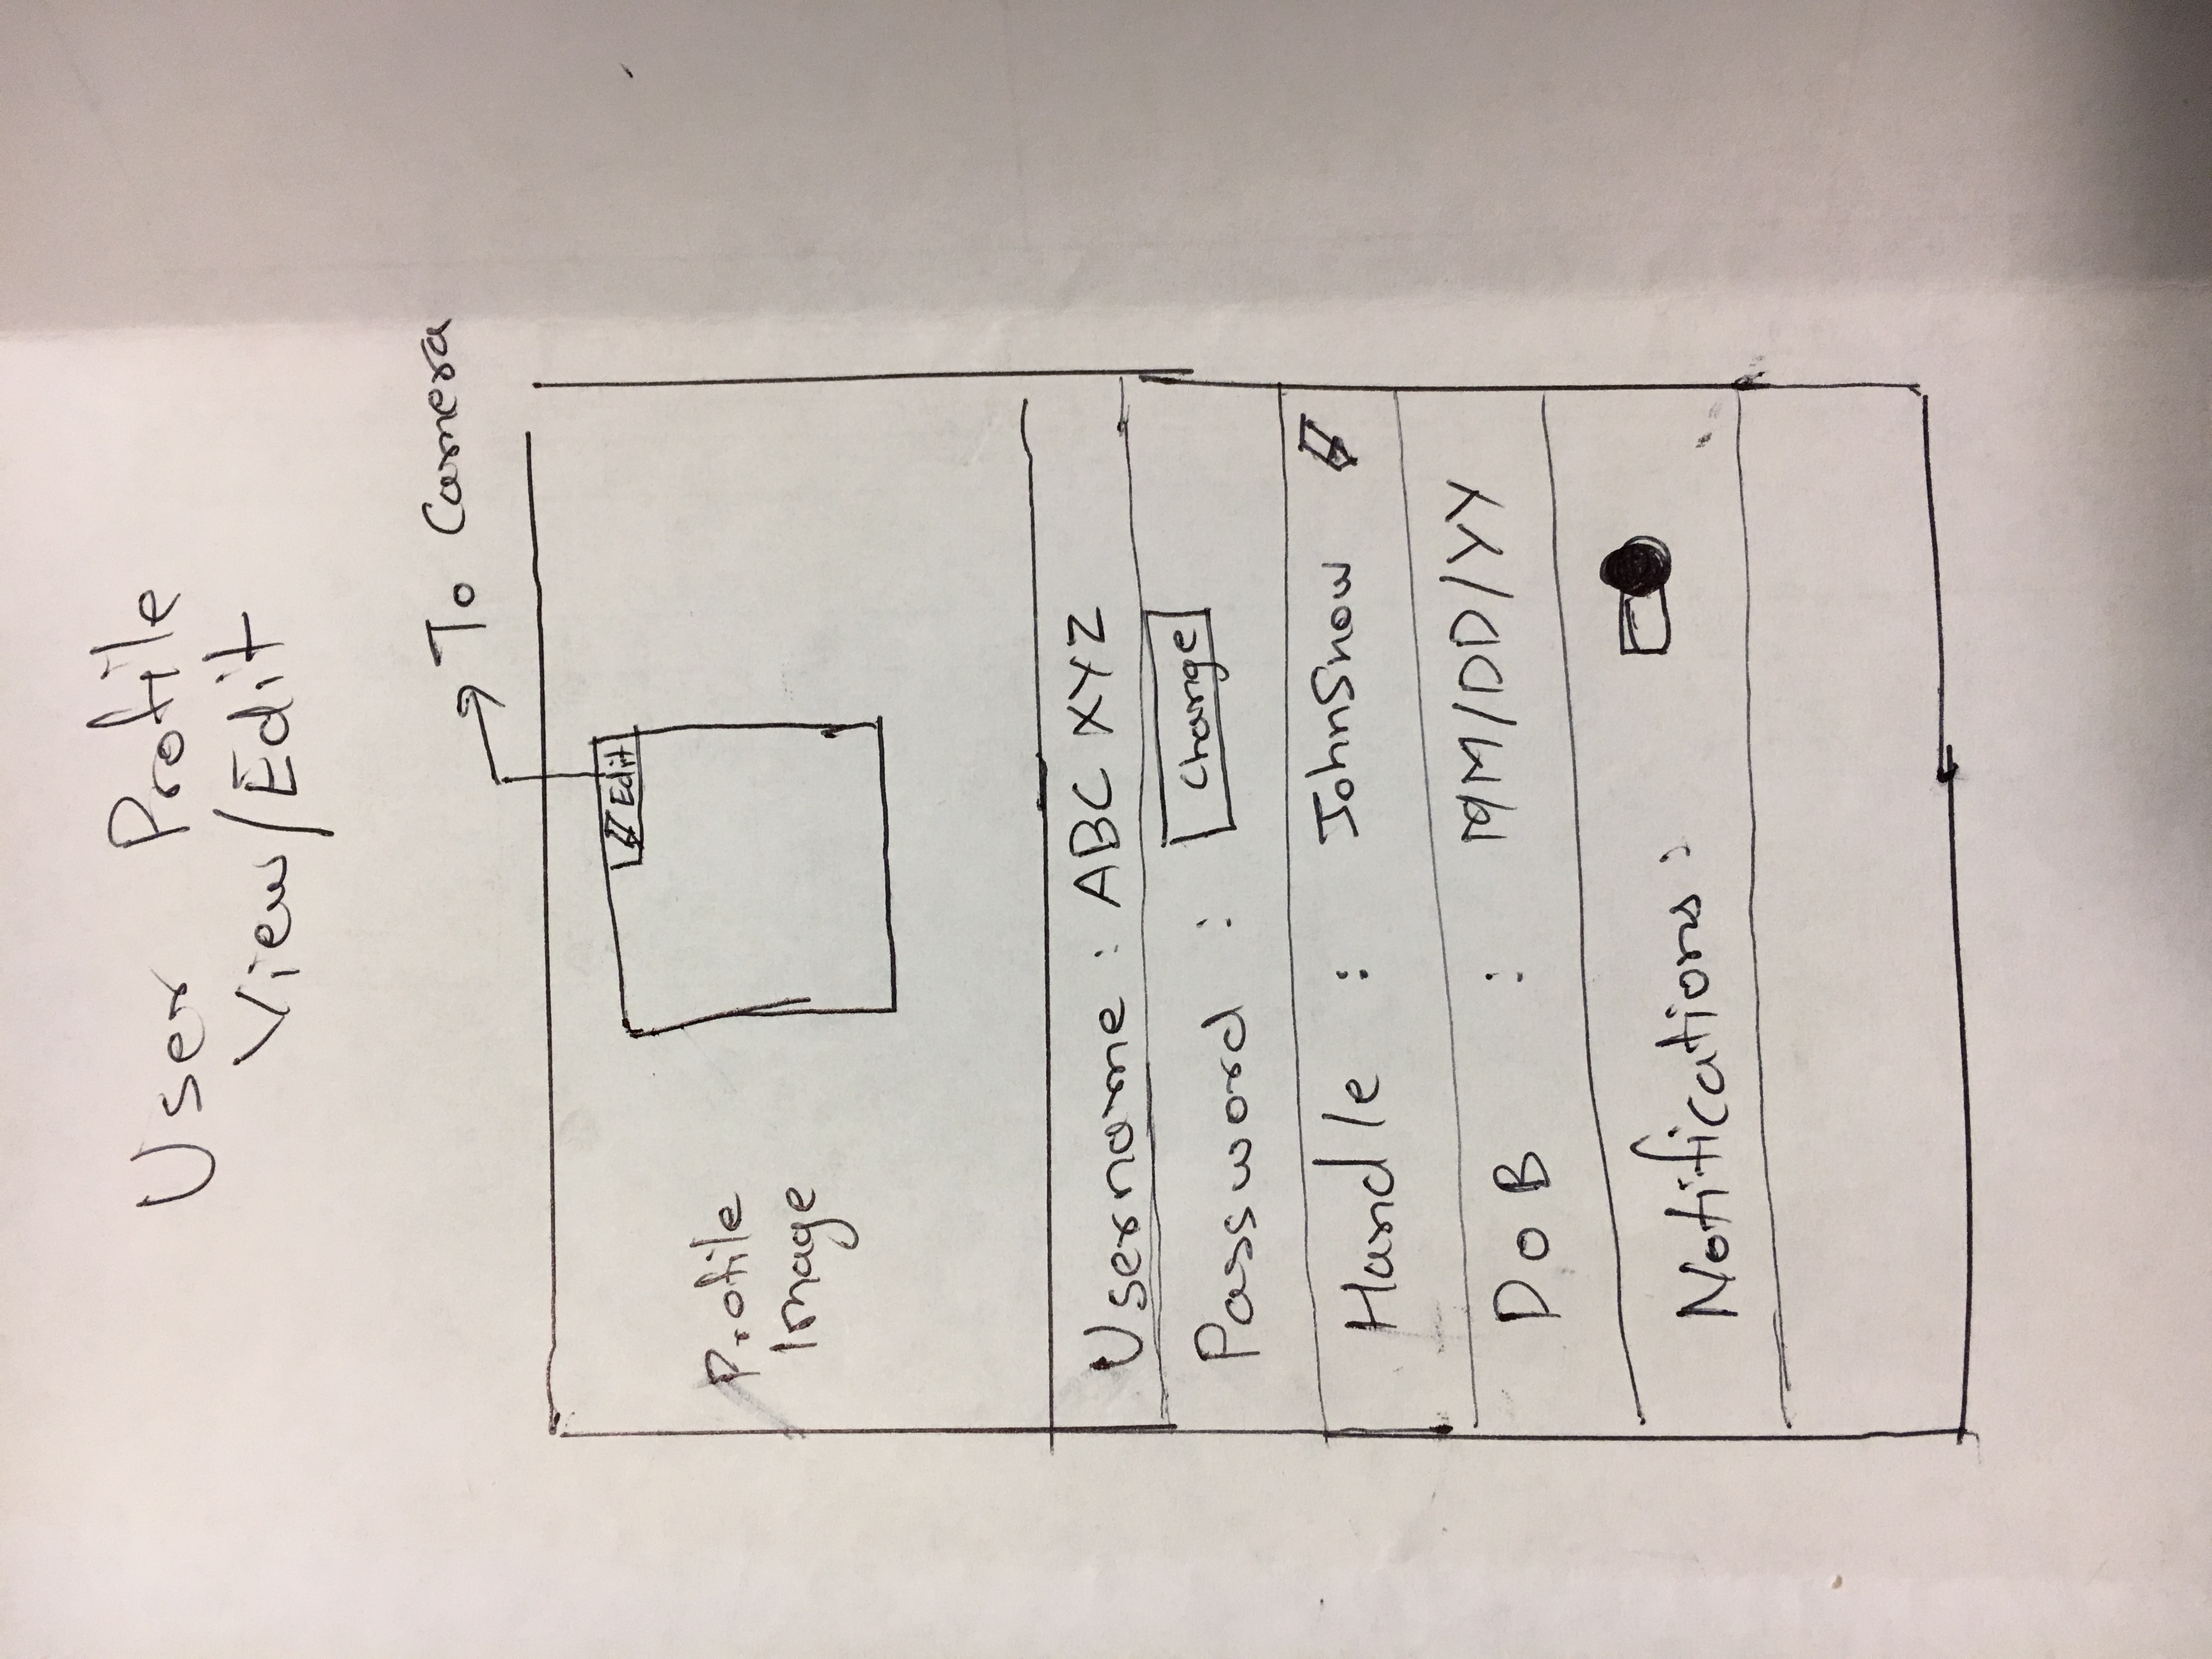 User Profile
View/Edit
To Camera
Edit
Profile
Image
Username : ABC XYZ
Password : Change
Handle : JohnSnow
DoB : MM/DD/YY
Notifications :